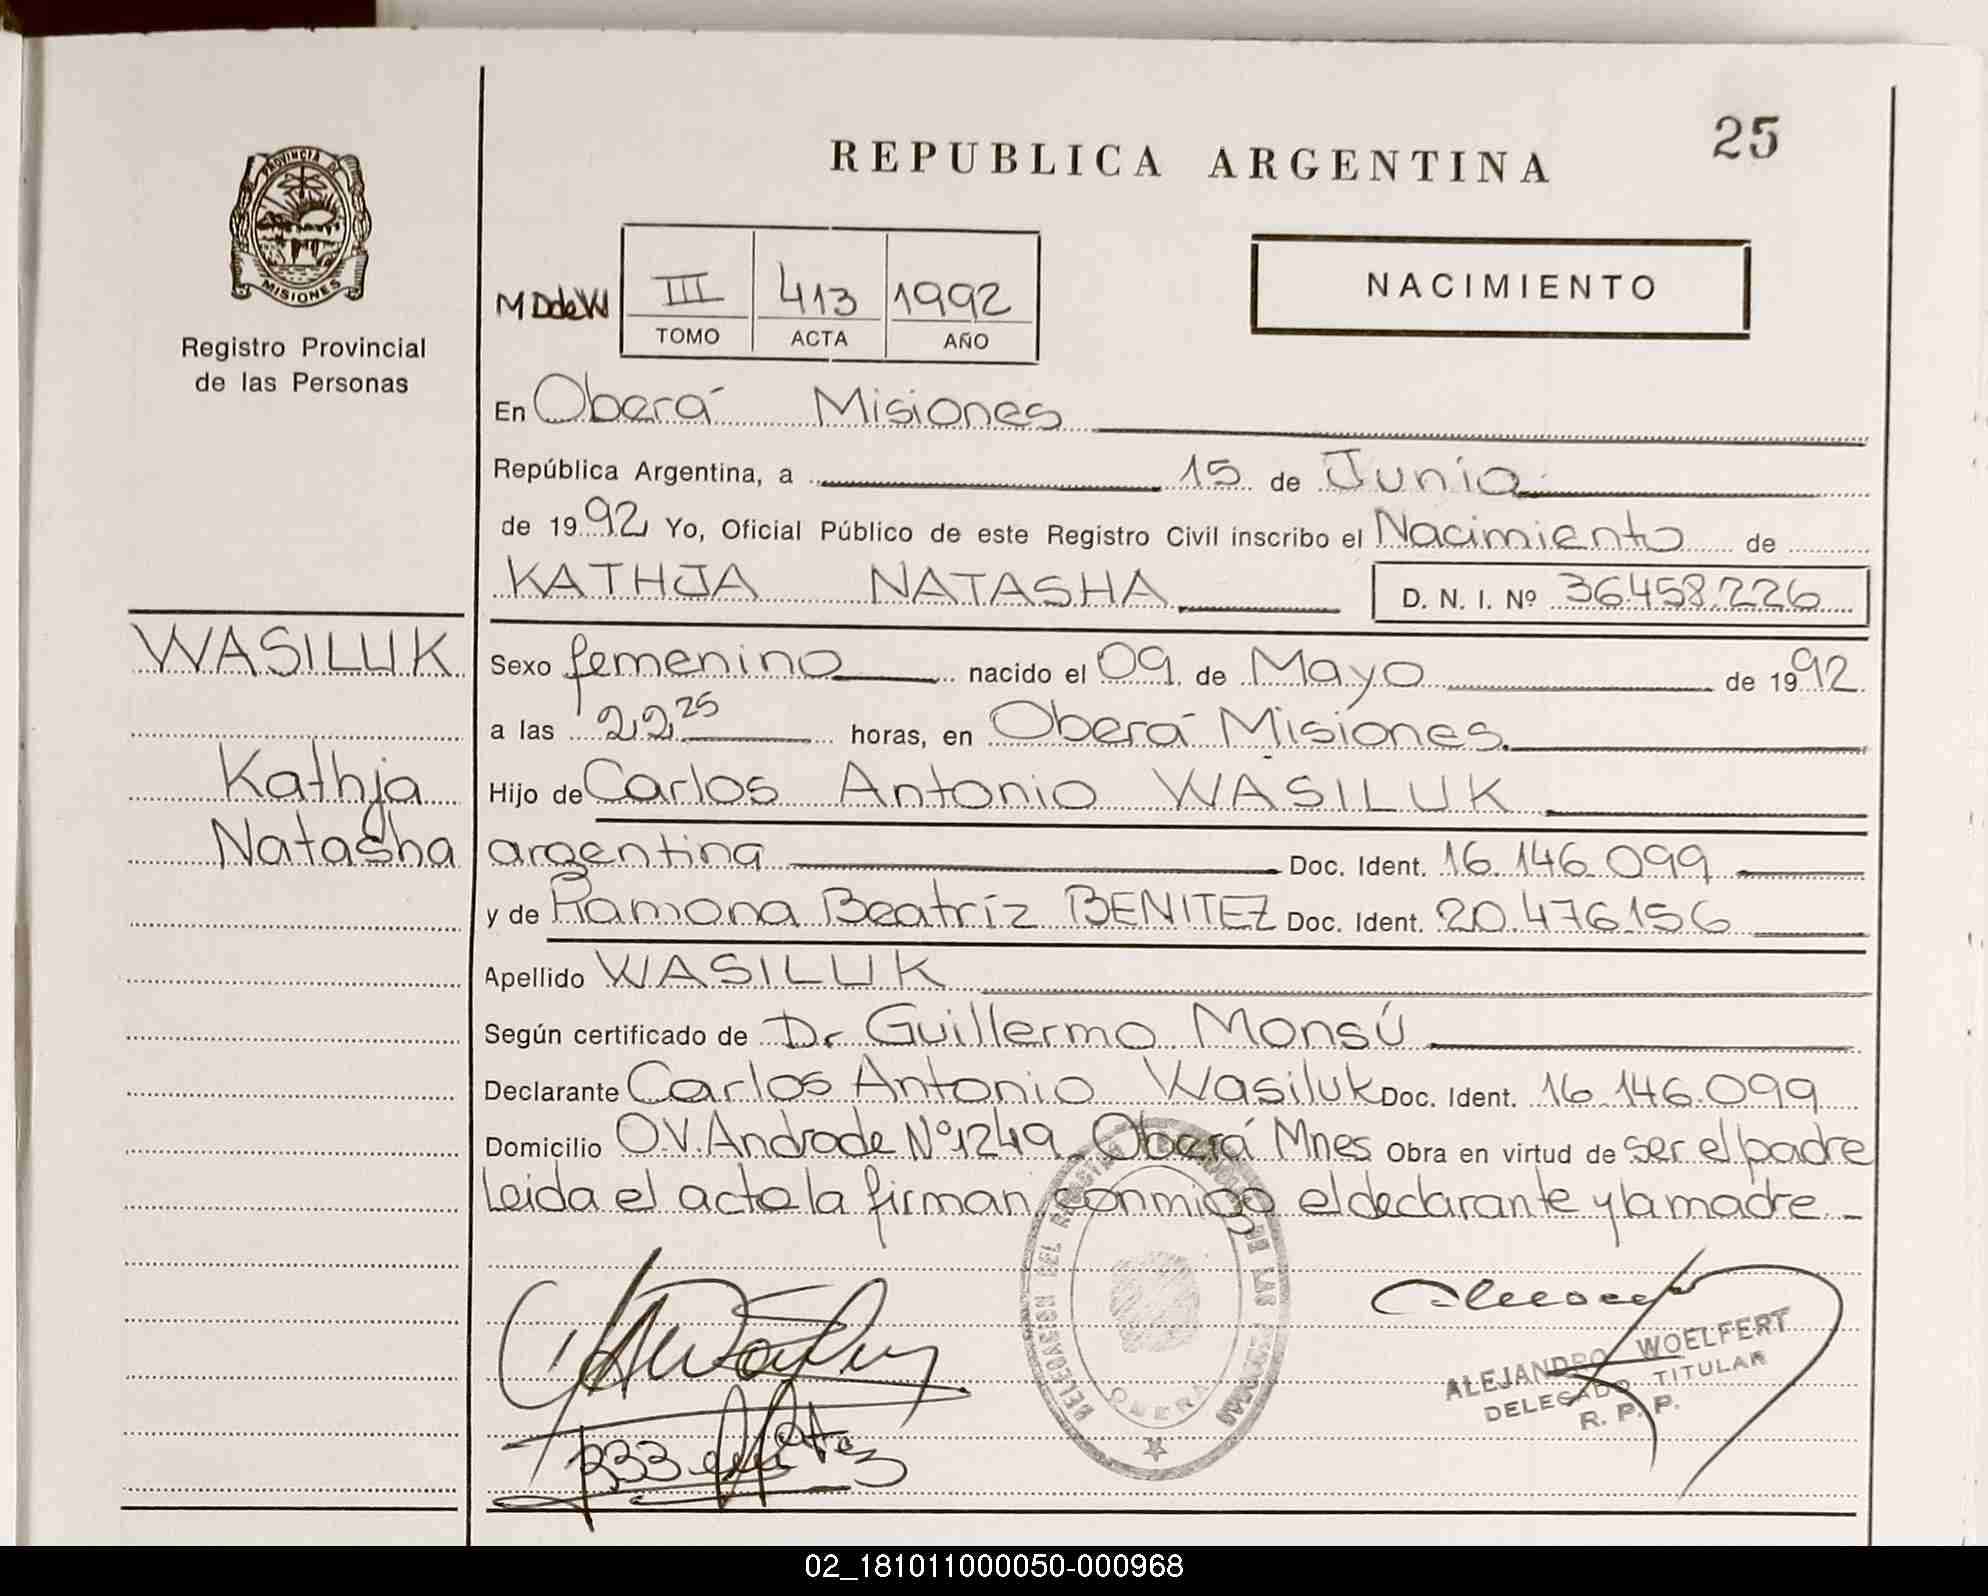 25
REPUBLICA ARGENTINA
PROVINCIA DE
MISIONES
Registro Provincial
de las Personas
NACIMIENTO
MDdeW III 413 1992
TOMO ACTA AÑO
En Oberá Misiones
República Argentina, a 15 de Junio
de 1992 Yo, Oficial Público de este Registro Civil inscribo el Nacimiento de
KATHJA NATASHA D. N. I. Nº 36458.226
WASILUK
Kathja
Natasha
Sexo femenino nacido el 09 de Mayo de 1992
a las 22,25 horas, en Oberá Misiones.
Hijo de Carlos Antonio WASILUK
argentina Doc. Ident. 16.146.099
y de Ramona Beatríz BENITEZ Doc. Ident. 20.476.156
Apellido WASILUK
Según certificado de Dr Guillermo Monsú
Declarante Carlos Antonio Wasiluk Doc. Ident. 16.146.099
Domicilio O.V. Andrade Nº1249 Oberá Mnes Obra en virtud de ser el padre
Leida el acta la firman conmigo el declarante y la madre
DELEGACION DEL REGISTRO DE LAS PERSONAS
OBERA
ALEJANDRO WOELFERT
DELEGADO TITULAR
R. P. P.
02_181011000050-000968